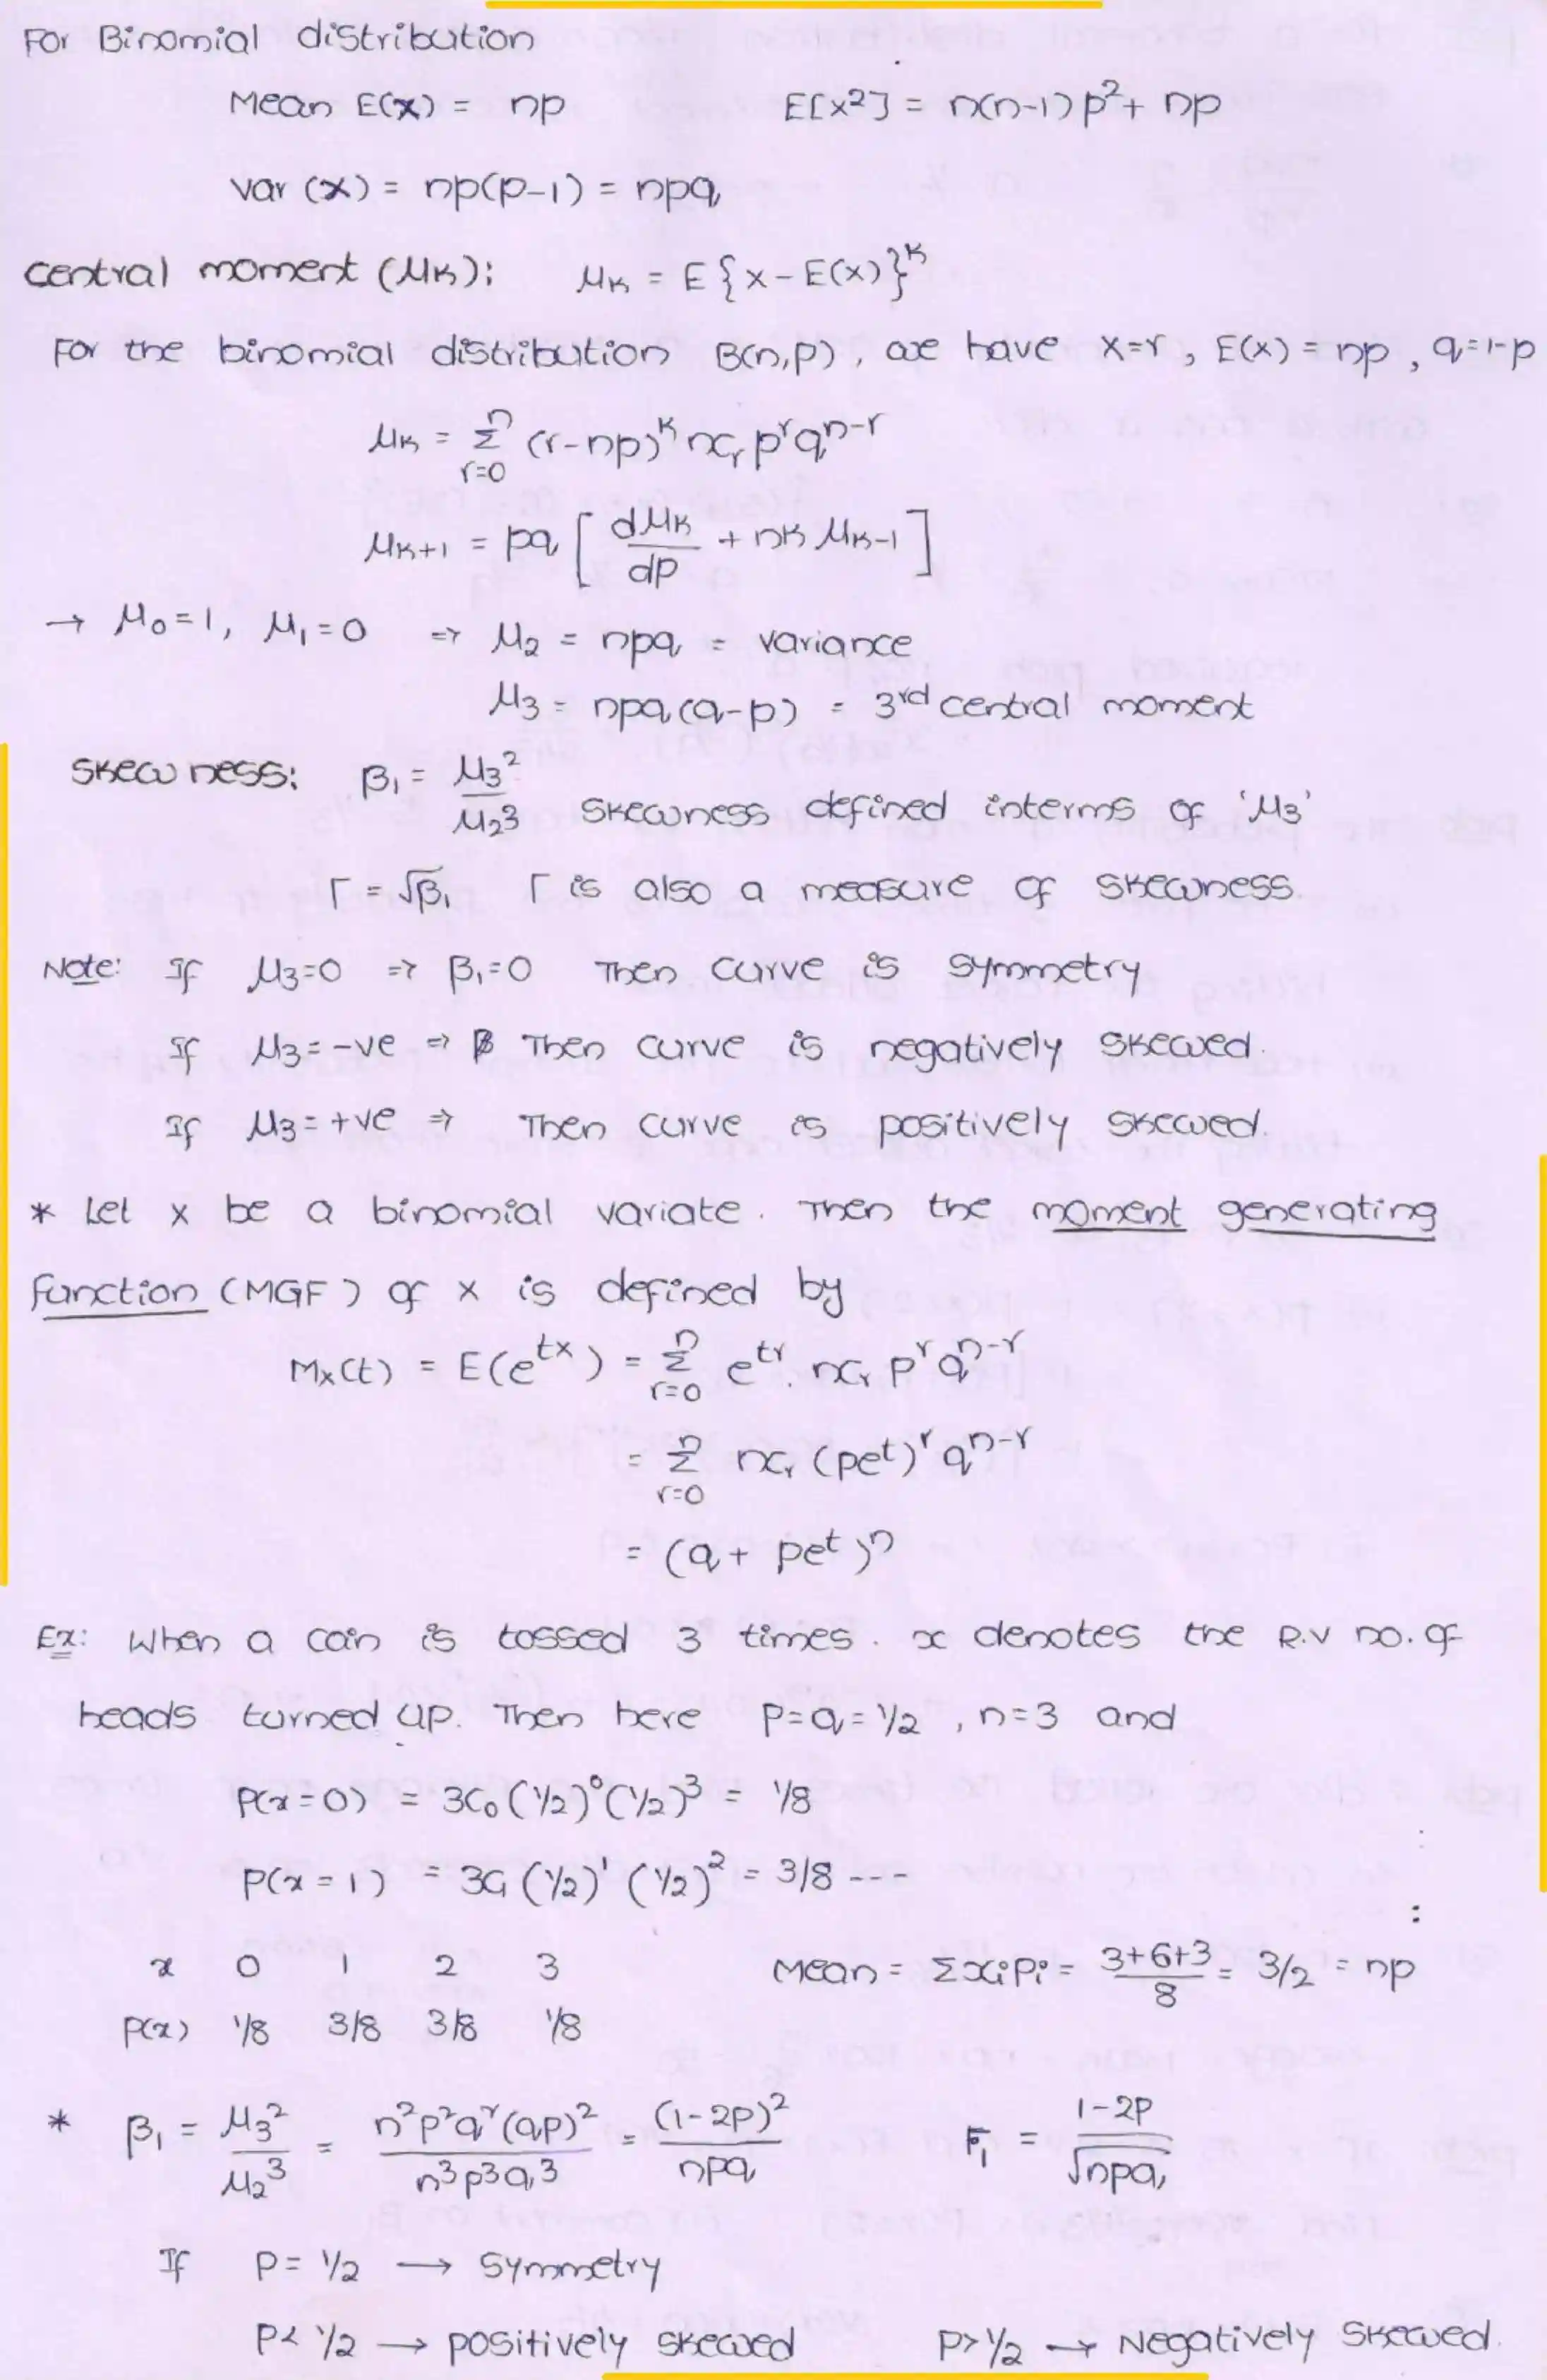 For Binomial distribution
Mean E(x) = np E[x²] = n(n-1)p² + np
var (x) = np(p-1) = npq
central moment (μₖ): μₖ = E{x - E(x)}ᵏ
For the binomial distribution B(n,p), we have x=r, E(x) = np, q=1-p
μₖ = Σ_{r=0}^{n} (r-np)ᵏ nCᵣ pʳqⁿ⁻ʳ
μₖ₊₁ = pq [ dμₖ/dp + nk μₖ₋₁ ]
→ μ₀=1, μ₁=0 ⇒ μ₂ = npq = variance
μ₃ = npq(q-p) = 3rd central moment
Skewness: β₁ = μ₃²/μ₂³ Skewness defined interms of 'μ₃'
Γ = √β₁ Γ is also a measure of skewness.
Note: If μ₃=0 ⇒ β₁=0 Then curve is symmetry
If μ₃=-ve ⇒ Then curve is negatively skewed.
If μ₃=+ve ⇒ Then curve is positively skewed.
* Let x be a binomial variate. Then the moment generating
function (MGF) of x is defined by
Mₓ(t) = E(eᵗˣ) = Σ_{r=0}^{n} eᵗʳ. nCᵣ pʳ qⁿ⁻ʳ
= Σ_{r=0}^{n} nCᵣ (peᵗ)ʳ qⁿ⁻ʳ
= (q + peᵗ)ⁿ
Ex: When a coin is tossed 3 times. x denotes the R.V no. of
heads turned up. Then here P=q=1/2, n=3 and
P(x=0) = 3C₀(1/2)⁰(1/2)³ = 1/8
P(x=1) = 3C₁(1/2)¹(1/2)² = 3/8 ---
x 0 1 2 3 Mean = Σxᵢpᵢ = (3+6+3)/8 = 3/2 = np
P(x) 1/8 3/8 3/8 1/8
* β₁ = μ₃²/μ₂³ = n²p²q²(qp)²/n³p³q³ = (1-2p)²/npq Γ₁ = 1-2p/√npq
If P=1/2 → Symmetry
P<1/2 → positively skewed P>1/2 → Negatively Skewed.